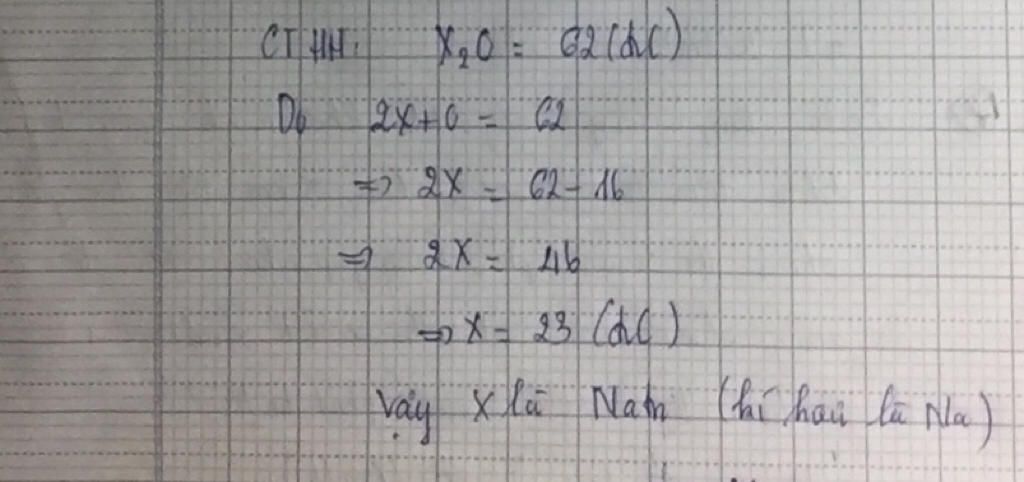 CTHH: X₂O = 62 (đvC)
Do 2X + O = 62
=> 2X = 62 - 16
=> 2X = 46
=> X = 23 (đvC)
Vậy X là Natri (kí hiệu là Na)